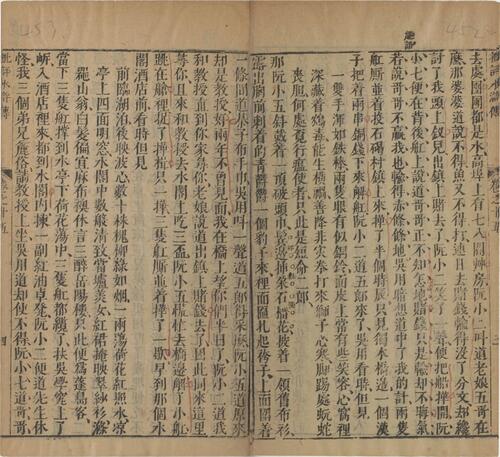 去處團團都是水高埠上有七八間草房阮小二叫道老娘五哥在
麽那婆婆道說不得魚又不得打連日去賭錢輸得沒了分文却纔
討了我頭上釵兒出鎮上賭去了阮小二笑了一聲便把船掉開阮
小七便在背後船上說道哥哥正不知怎地賭錢只是輸却不晦氣
若說哥哥不贏我也輸得赤條條地吳用暗想道中了我的計兩隻
船厮並着投石碣村鎮上來掉了半個時辰只見獨木橋邊一個漢
子把着兩串銅錢下來解船阮小二道五郎來了吳用看時但見
一雙手渾如鉄棒兩隻眼有似銅鈴面皮上常有些笑容心窩裡
深藏着鴆毒能生橫禍善降非災拳打來獅子心寒脚踢處蚖蛇
喪胆何處覔行瘟使者只此是短命二郎
那阮小五斜戴着一頂破頭巾鬢邊插朶石榴花披着一領舊布衫
露出胸前刺着的青鬱鬱一個豹子來裡面匾扎起袴子上面圍着
一條間道棊子布手巾吳用叫一聲道五郎得采麽阮小五道原來
却是教授好兩年不曾見面我在橋上望你們半日了阮小二道我
和教授直到你家尋你老娘說道出鎮上賭錢去了因此同來這里
尋你且來和教授去水閣上吃三盃阮小五慌忙去橋邊解了小船
跳在艙裡捉了樺楫只一樺三隻船厮並着樺了一歇早到那個水
閣酒店前看時但見
前臨湖泊後映波心數十株槐柳綠如烟一兩蕩荷花紅照水凉
亭上四面明窓水閣中數般清致當壚美女紅裙掩映翠紗衫滌
器山翁白髮偏宜麻布襖休言三醉岳陽樓只此便爲蓬島客
當下三隻船撑到水亭下荷花蕩中三隻船都纜了扶吳學究上了
岸入酒店裡來都到水閣內揀一副紅油卓凳阮小二便道先生休
怪我三個弟兄麄俗請教授上坐吳用道却使不得阮小七道哥哥